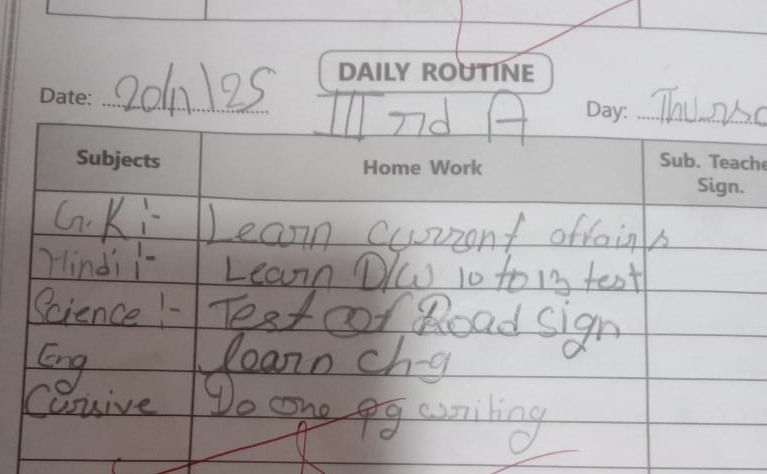 DAILY ROUTINE
Date: 20/11/25
III nd A
Day: Thursd
Subjects Home Work Sub. Teache
Sign.
G.K :- Learn current affairs
Hindi :- Learn D/W 10 to 13 test
Science :- Test of Road Sign
Eng learn ch-9
Cursive Do one pg writing